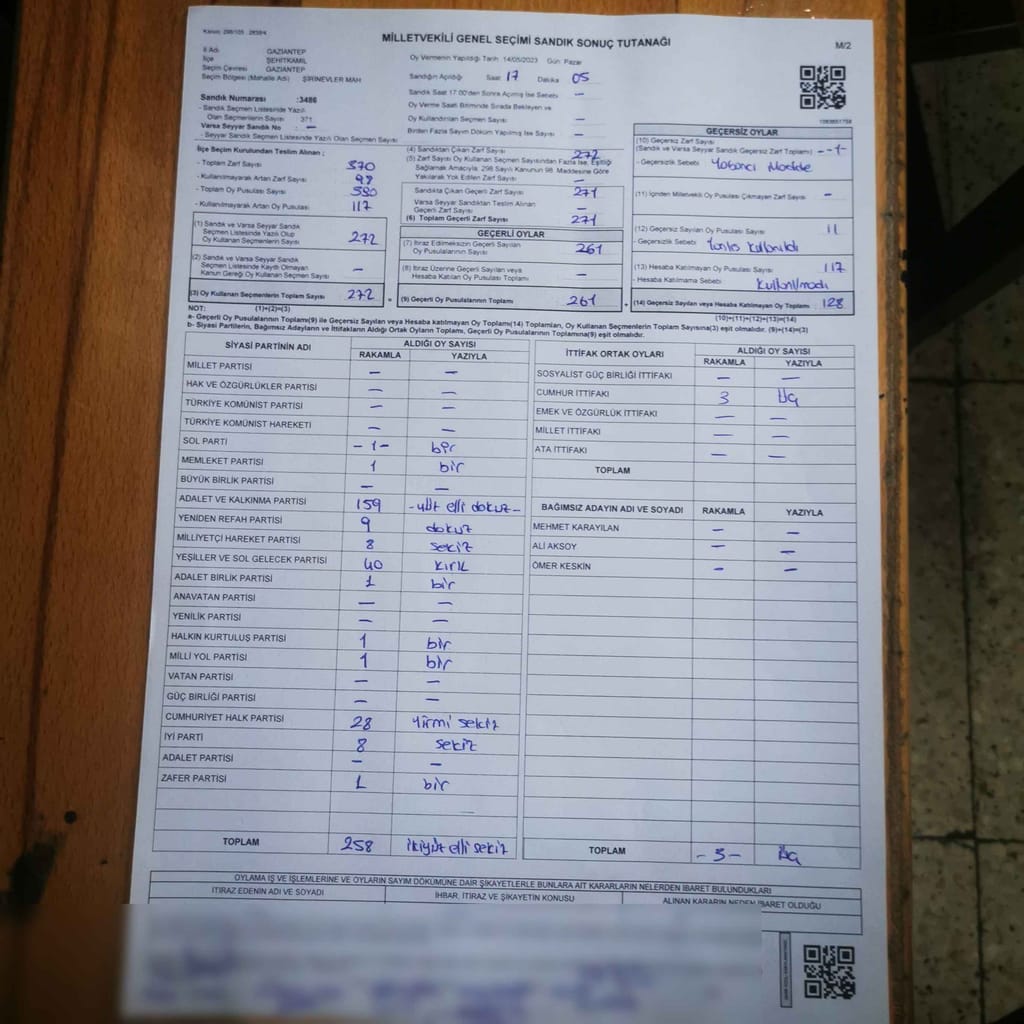 MİLLETVEKİLİ GENEL SEÇİMİ SANDIK SONUÇ TUTANAĞI
M/2
İl Adı GAZİANTEP
İlçe ŞEHİTKAMİL
Seçim Çevresi GAZİANTEP
Seçim Bölgesi (Mahalle Adı) ŞİRİNEVLER MAH
Sandık Numarası :3486
- Sandık Seçmen Listesinde Yazılı
Olan Seçmenlerin Sayısı 371
Varsa Seyyar Sandık No : —
- Seyyar Sandık Seçmen Listesinde Yazılı Olan Seçmen Sayısı
İlçe Seçim Kurulundan Teslim Alınan ;
- Toplam Zarf Sayısı 370
- Kullanılmayarak Artan Zarf Sayısı 98
- Toplam Oy Pusulası Sayısı 380
- Kullanılmayarak Artan Oy Pusulası 117
(1) Sandık ve Varsa Seyyar Sandık
Seçmen Listesinde Yazılı Olup
Oy Kullanan Seçmenlerin Sayısı 272
(2) Sandık ve Varsa Seyyar Sandık
Seçmen Listesinde Kayıtlı Olmayan
Kanun Gereği Oy Kullanan Seçmen Sayısı —
(3) Oy Kullanan Seçmenlerin Toplam Sayısı 272
(1)+(2)=(3)
Oy Vermenin Yapıldığı Tarih 14/05/2023 Gün: Pazar
Sandığın Açıldığı Saat 17 Dakika 05
Sandık Saat 17:00'den Sonra Açılmış İse Sebebi —
Oy Verme Saati Bitiminde Sırada Bekleyen ve
Oy Kullandırılan Seçmen Sayısı —
Birden Fazla Sayım Döküm Yapılmış İse Sayısı —
(4) Sandıktan Çıkan Zarf Sayısı 272
(5) Zarf Sayısı Oy Kullanan Seçmen Sayısından Fazla İse, Eşitliği
Sağlamak Amacıyla, 298 Sayılı Kanunun 98. Maddesine Göre
Yakılarak Yok Edilen Zarf Sayısı —
Sandıkta Çıkan Geçerli Zarf Sayısı 271
Varsa Seyyar Sandıktan Teslim Alınan
Geçerli Zarf Sayısı —
(6) Toplam Geçerli Zarf Sayısı 271
GEÇERLİ OYLAR
(7) İtiraz Edilmeksizin Geçerli Sayılan
Oy Pusulalarının Sayısı 261
(8) İtiraz Üzerine Geçerli Sayılan veya
Hesaba Katılan Oy Pusulası Toplamı —
(9) Geçerli Oy Pusulalarının Toplamı 261
GEÇERSİZ OYLAR
(10) Geçersiz Zarf Sayısı
(Sandık ve Varsa Seyyar Sandık Geçersiz Zarf Toplamı) - -1-
- Geçersizlik Sebebi Yabancı Madde
(11) İçinden Milletvekili Oy Pusulası Çıkmayan Zarf Sayısı -
(12) Geçersiz Sayılan Oy Pusulası Sayısı 11
- Geçersizlik Sebebi Yanlış kullanıldı
(13) Hesaba Katılmayan Oy Pusulası Sayısı 117
- Hesaba Katılmama Sebebi Kullanılmadı
(14) Geçersiz Sayılan veya Hesaba Katılmayan Oy Toplamı 128
(10)+(11)+(12)+(13)=(14)
NOT:
a- Geçerli Oy Pusulalarının Toplamı(9) ile Geçersiz Sayılan veya Hesaba katılmayan Oy Toplamı(14) Toplamları, Oy Kullanan Seçmenlerin Toplam Sayısına(3) eşit olmalıdır. (9)+(14)=(3)
b- Siyasi Partilerin, Bağımsız Adayların ve İttifakların Aldığı Ortak Oyların Toplamı, Geçerli Oy Pusulalarının Toplamına(9) eşit olmalıdır.
SİYASİ PARTİNİN ADI ALDIĞI OY SAYISI
RAKAMLA YAZIYLA
MİLLET PARTİSİ — —
HAK VE ÖZGÜRLÜKLER PARTİSİ — —
TÜRKİYE KOMÜNİST PARTİSİ — —
TÜRKİYE KOMÜNİST HAREKETİ — —
SOL PARTİ -1- bir
MEMLEKET PARTİSİ 1 bir
BÜYÜK BİRLİK PARTİSİ — —
ADALET VE KALKINMA PARTİSİ 159 -yüz elli dokuz-
YENİDEN REFAH PARTİSİ 9 dokuz
MİLLİYETÇİ HAREKET PARTİSİ 8 sekiz
YEŞİLLER VE SOL GELECEK PARTİSİ 40 kırk
ADALET BİRLİK PARTİSİ 1 bir
ANAVATAN PARTİSİ — —
YENİLİK PARTİSİ — —
HALKIN KURTULUŞ PARTİSİ 1 bir
MİLLİ YOL PARTİSİ 1 bir
VATAN PARTİSİ — —
GÜÇ BİRLİĞİ PARTİSİ — —
CUMHURİYET HALK PARTİSİ 28 Yirmi sekiz
İYİ PARTİ 8 sekiz
ADALET PARTİSİ — —
ZAFER PARTİSİ 1 bir
TOPLAM 258 ikiyüz elli sekiz
İTTİFAK ORTAK OYLARI ALDIĞI OY SAYISI
RAKAMLA YAZIYLA
SOSYALİST GÜÇ BİRLİĞİ İTTİFAKI — —
CUMHUR İTTİFAKI 3 Üç
EMEK VE ÖZGÜRLÜK İTTİFAKI — —
MİLLET İTTİFAKI — —
ATA İTTİFAKI — —
TOPLAM
BAĞIMSIZ ADAYIN ADI VE SOYADI RAKAMLA YAZIYLA
MEHMET KARAYILAN — —
ALİ AKSOY — —
ÖMER KESKİN — —
TOPLAM -3- Üç
OYLAMA İŞ VE İŞLEMLERİNE VE OYLARIN SAYIM DÖKÜMÜNE DAİR ŞİKAYETLERLE BUNLARA AİT KARARLARIN NELERDEN İBARET BULUNDUKLARI
İTİRAZ EDENİN ADI VE SOYADI İHBAR, İTİRAZ VE ŞİKAYETİN KONUSU ALINAN KARARIN NEDEN İBARET OLDUĞU